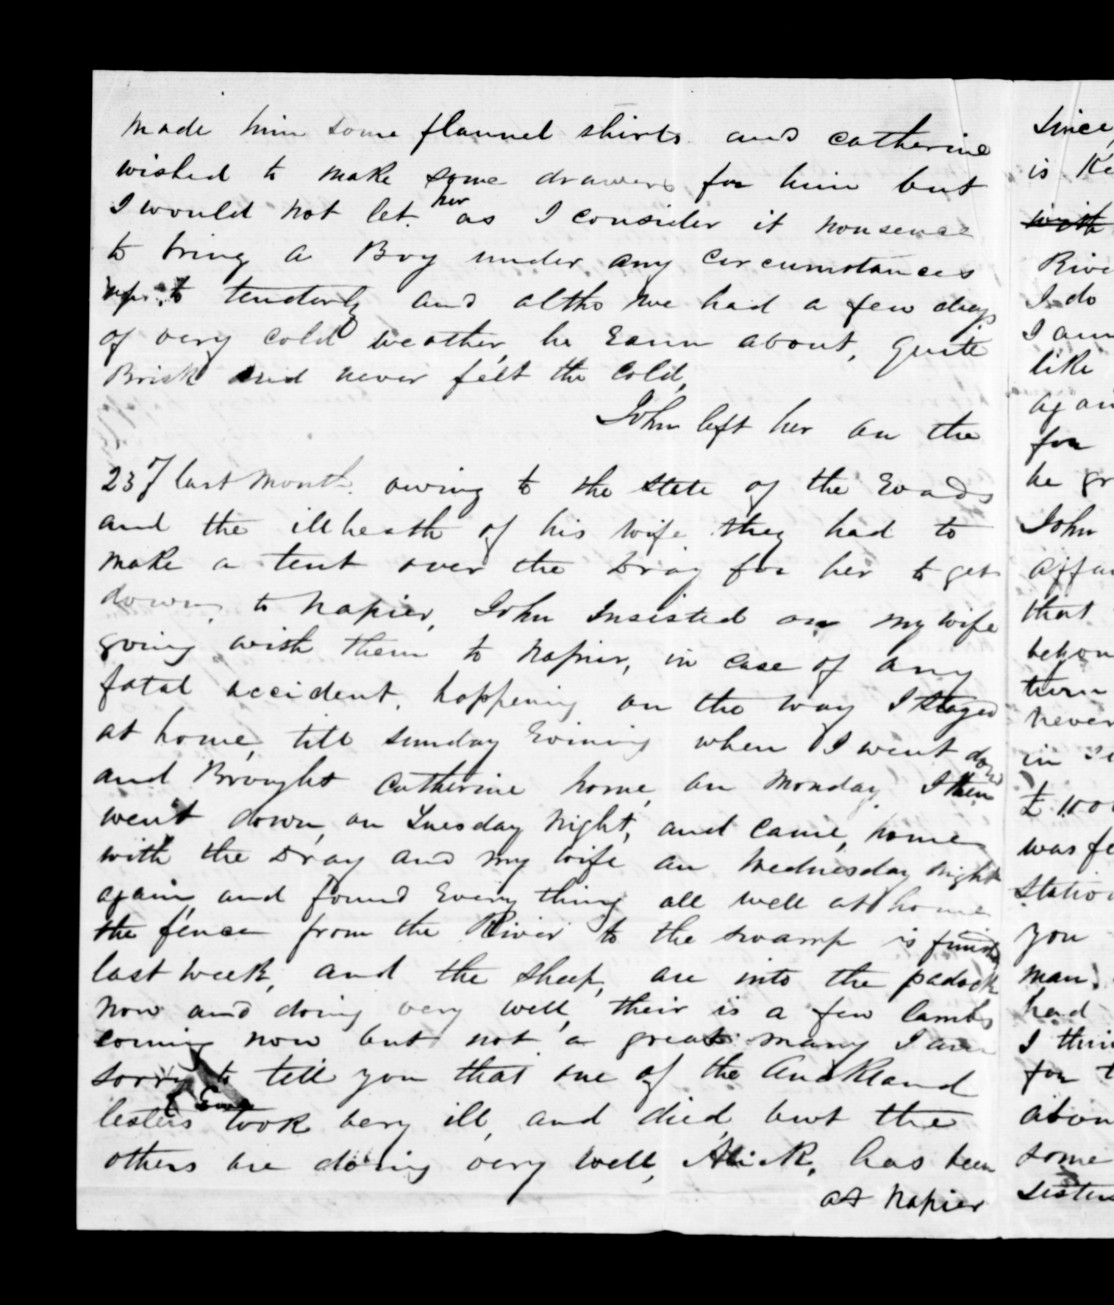 made him some flannel shirts and catherine
wished to make some drawers for him but
I would not let her as I consider it nonsense
to bring a Boy under any circumstances
up to tenderly and altho we had a few days
of very cold weather, he Rann about, quite
Brisk and never felt the cold,
John left her on the
23 last month owing to the state of the Roads
and the illheath of his wife they had to
make a tent over the Dray for her to get
down to Napier, John Insisted on my wife
going with them to Napier, in case of any
fatal accident, happening on the way I stayed
at home, till sunday Evining when I went down
and Brought catherine home, on Monday, I then
went down, on Tuesday Night, and came, home
with the Dray and my wife on Wednesday Night
again, and found Every thing all well at home
the fence from the River to the swamp is
last week, and the sheep, are into the padock
now and doing very well, their is a few lambs
coming now but not a great many I am
sorry to tell you that one of the Auckland
took very ill, and died, but the
others are doing very well, Alick, has been
at Napier
Since
is
with
I do
like
again
for
he
John
that
never
in
was
you
man
had
I
for
some